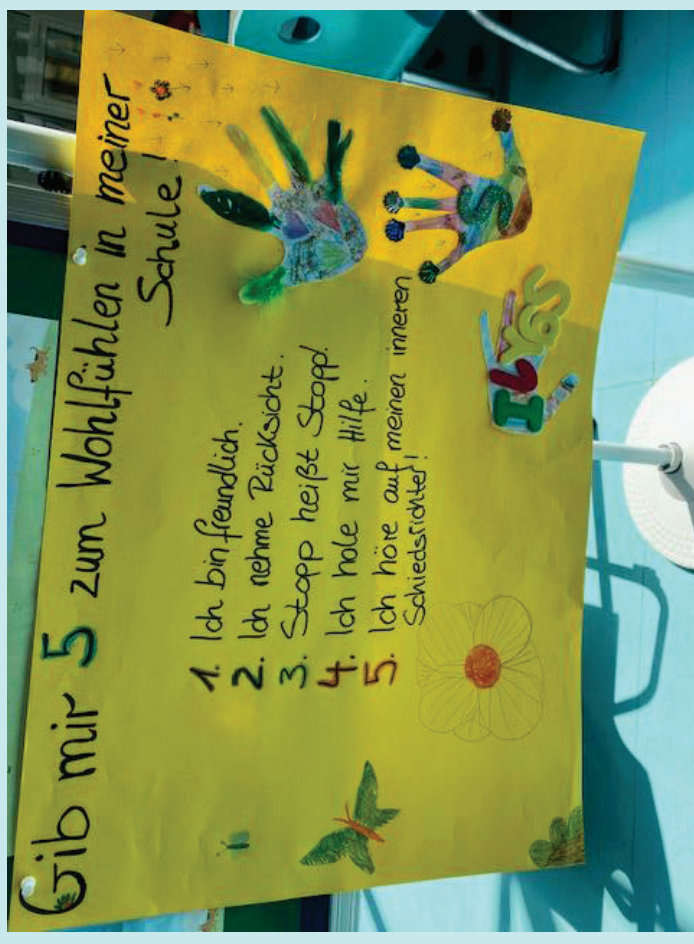 Gib mir 5 zum Wohlfühlen in meiner
Schule!
1. Ich bin freundlich.
2. Ich nehme Rücksicht.
3. Stopp heißt Stopp!
4. Ich hole mir Hilfe.
5. Ich höre auf meinen inneren
Schiedsrichter!
S
I L YGS